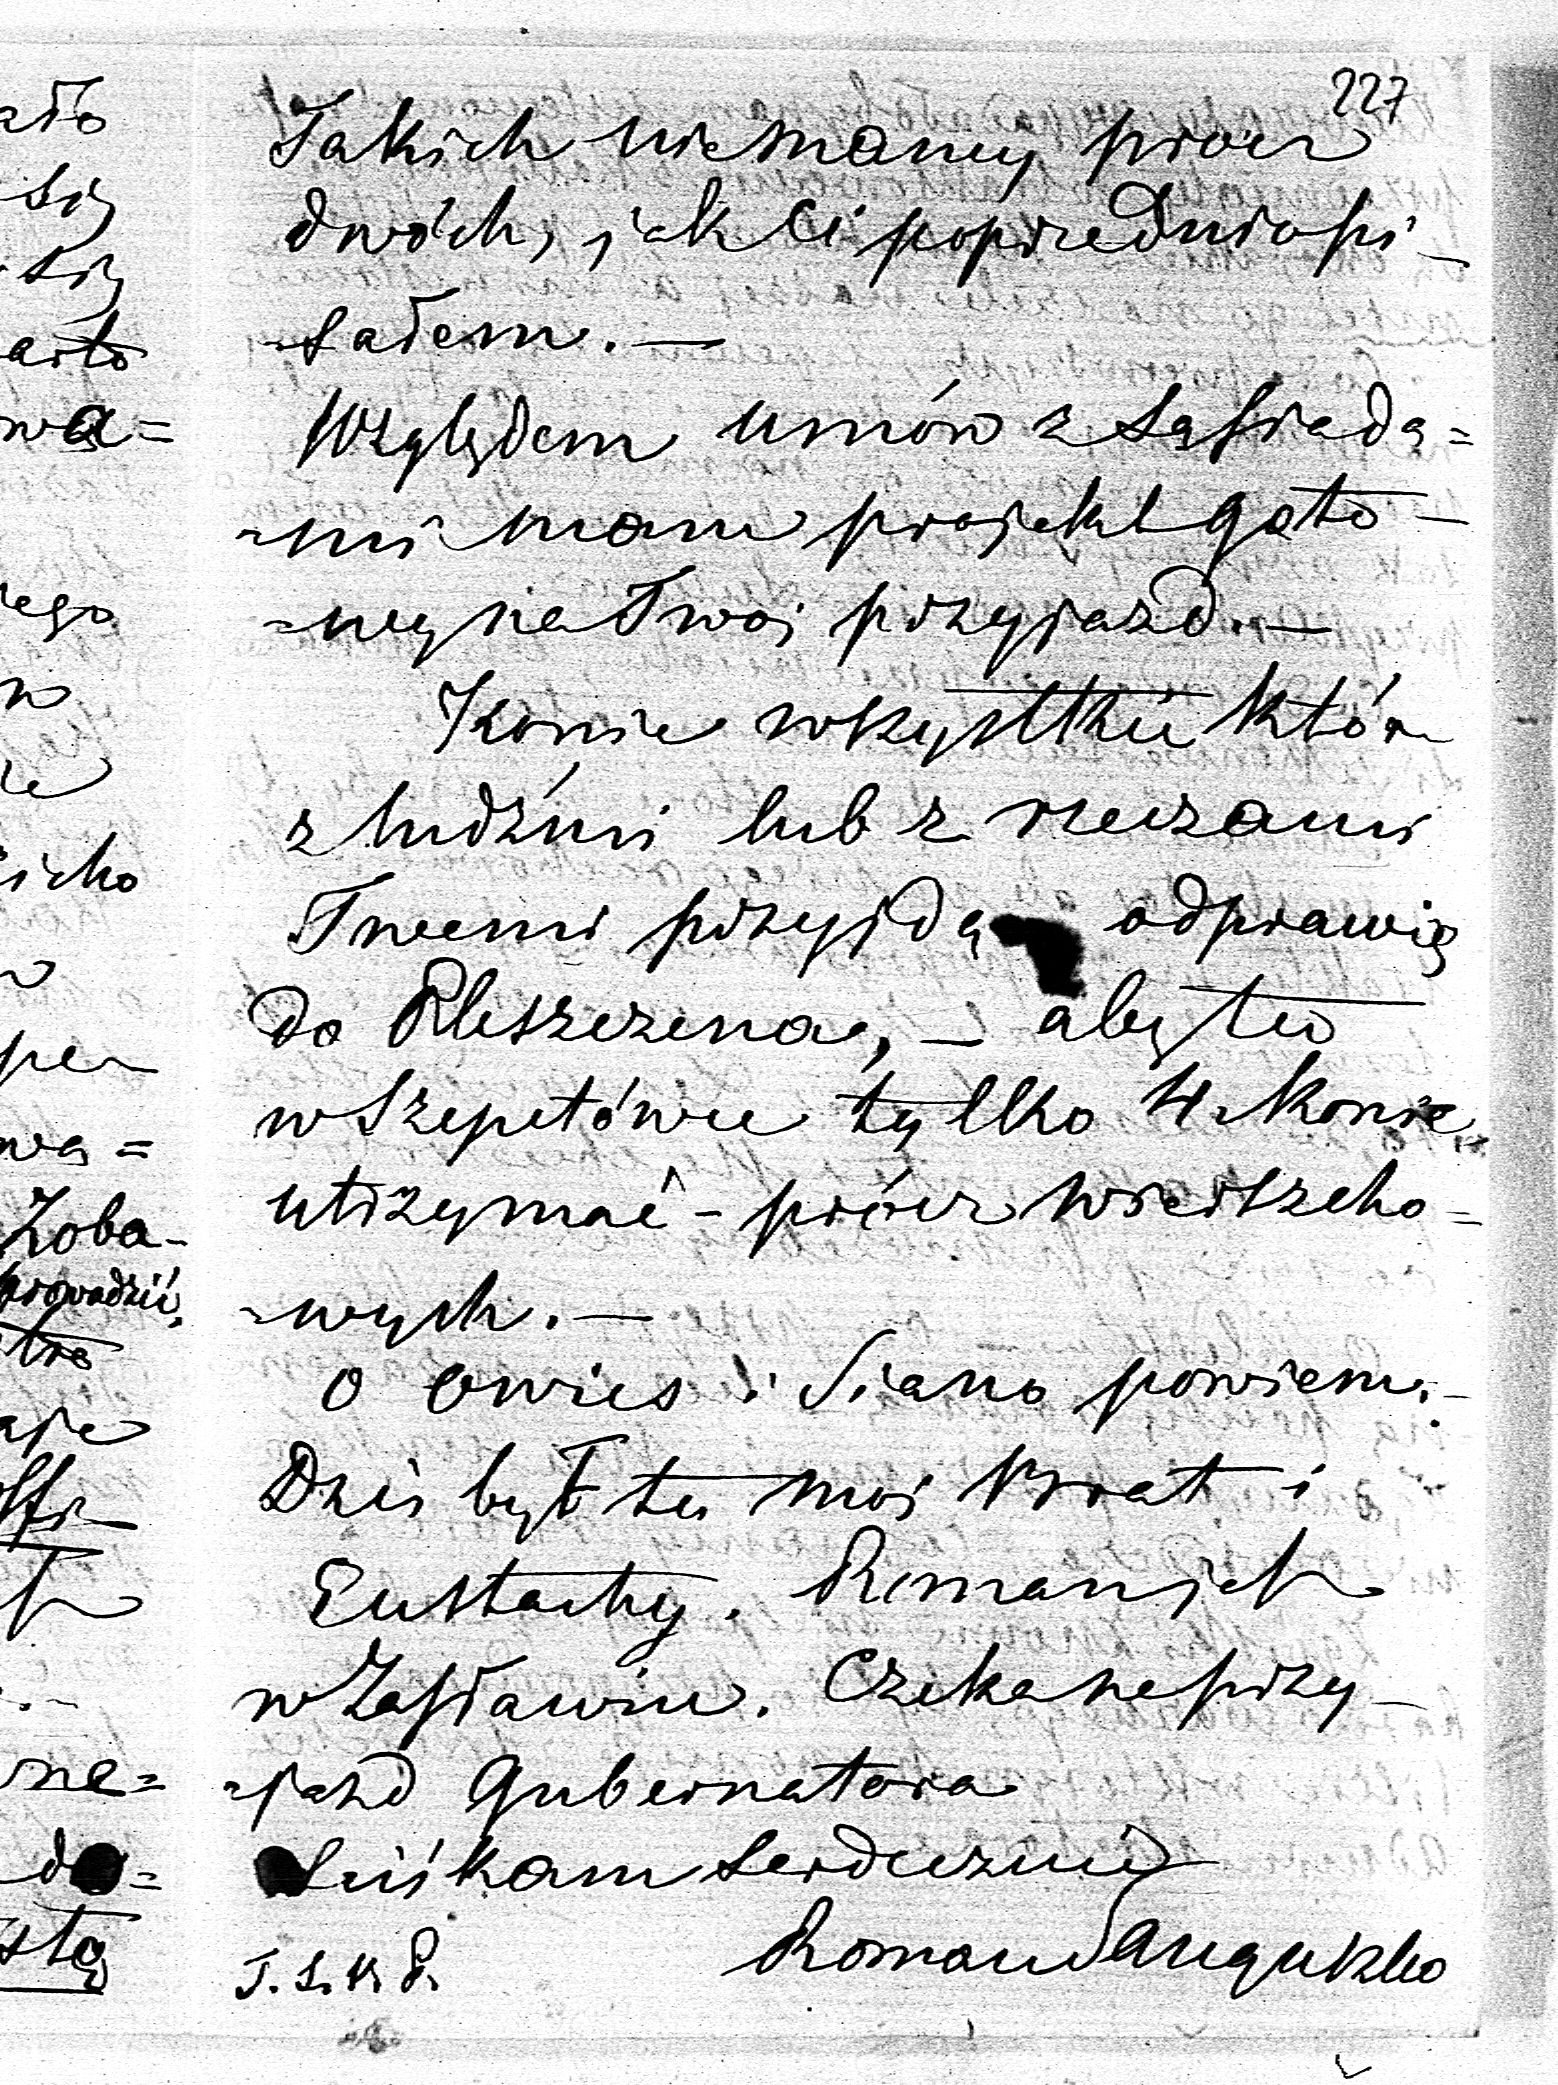 227
Takich niemamy prócz
dwóch, jak Ci poprzednio pi-
-sałem.—
Względem umów z sąsiada=
-mi mam projekt goto-
-wy na Twoj przyjazd.—
Konie wszystkie któr
z ludźmi lub z rzeczami
Twemi przyjdą odprawię
do Pleszczena, — aby tu
w Szepetówce tylko 4 konie
utrzymać - prócz wierszcho=
-wych.—
O Owies i Siano powiem.-
Dziś był tu moj Brat i
Eustachy. Roman jest
w Zasławiu. Czeka na przy-
-jazd Gubernatora
Sciskam serdecznie
Roman Sanguszko
T. S. K. P.
ało
się
się
arto
wa=
iego
w
icho
per
wa=
Zoba-
prowadzić.
tro
aje
ne=
do=
stą